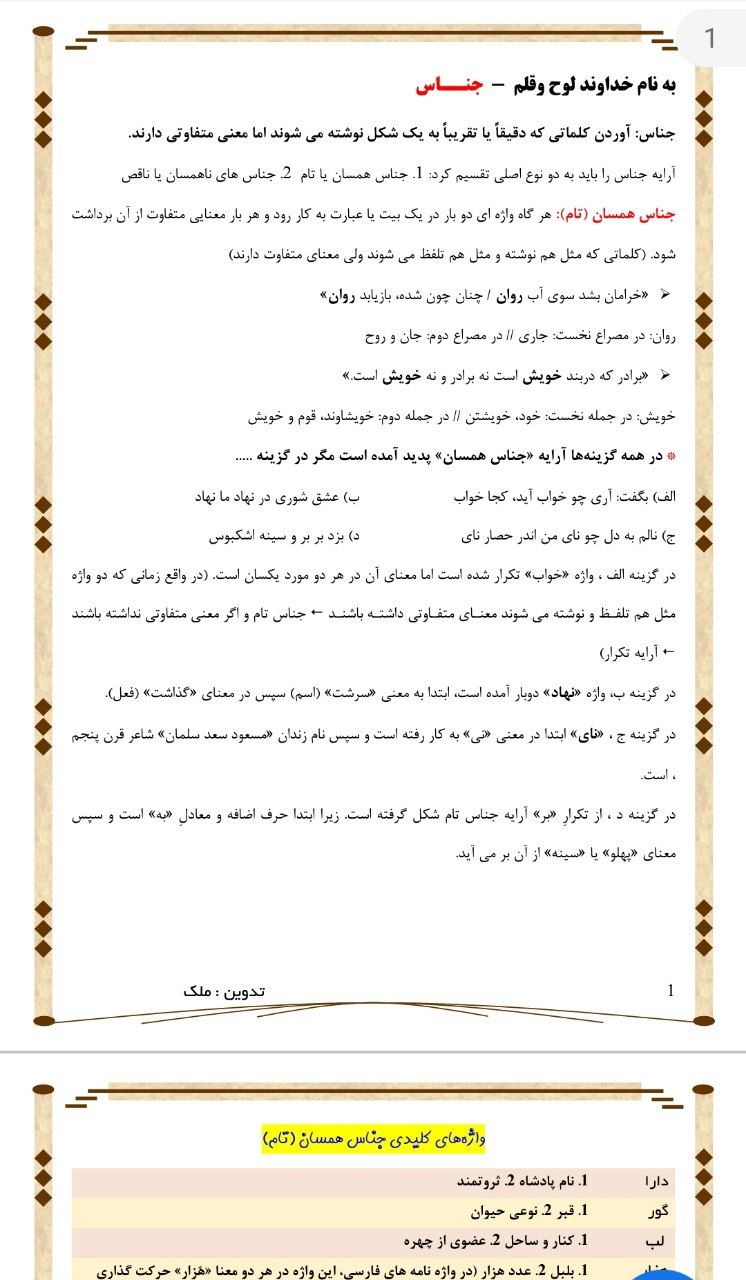 1
به نام خداوند لوح وقلم – جنـــاس
جناس: آوردن کلماتی که دقیقاً یا تقریباً به یک شکل نوشته می شوند اما معنی متفاوتی دارند.
آرایه جناس را باید به دو نوع اصلی تقسیم کرد: 1. جناس همسان یا تام 2. جناس های ناهمسان یا ناقص
جناس همسان (تام): هر گاه واژه ای دو بار در یک بیت یا عبارت به کار رود و هر بار معنایی متفاوت از آن برداشت
شود. (کلماتی که مثل هم نوشته و مثل هم تلفظ می شوند ولی معنای متفاوت دارند)
➢ «خرامان بشد سوی آب روان / چنان چون شده، بازیابد روان»
روان: در مصراع نخست: جاری // در مصراع دوم: جان و روح
➢ «برادر که دربند خویش است نه برادر و نه خویش است.»
خویش: در جمله نخست: خود، خویشتن // در جمله دوم: خویشاوند، قوم و خویش
* در همه گزینه‌ها آرایه «جناس همسان» پدید آمده است مگر در گزینه .....
الف) بگفت: آری چو خواب آید، کجا خواب ب) عشق شوری در نهاد ما نهاد
ج) نالم به دل چو نای من اندر حصار نای د) بزد بر بر و سینه اشکبوس
در گزینه الف ، واژه «خواب» تکرار شده است اما معنای آن در هر دو مورد یکسان است. (در واقع زمانی که دو واژه
مثل هم تلفـظ و نوشته می شوند معنـای متفـاوتی داشتـه باشنـد ← جناس تام و اگر معنی متفاوتی نداشته باشند
← آرایه تکرار)
در گزینه ب، واژه «نهاد» دوبار آمده است، ابتدا به معنی «سرشت» (اسم) سپس در معنای «گذاشت» (فعل).
در گزینه ج ، «نای» ابتدا در معنی «نی» به کار رفته است و سپس نام زندان «مسعود سعد سلمان» شاعر قرن پنجم
، است.
در گزینه د ، از تکرارِ «بر» آرایه جناس تام شکل گرفته است. زیرا ابتدا حرف اضافه و معادلِ «به» است و سپس
معنای «پهلو» یا «سینه» از آن بر می آید.
1 تدوین : ملک
واژه‌های کلیدی جناس همسان (تام)
دارا 1. نام پادشاه 2. ثروتمند
گور 1. قبر 2. نوعی حیوان
لب 1. کنار و ساحل 2. عضوی از چهره
1. بلبل 2. عدد هزار (در واژه نامه های فارسی، این واژه در هر دو معنا «هَزار» حرکت گذاری